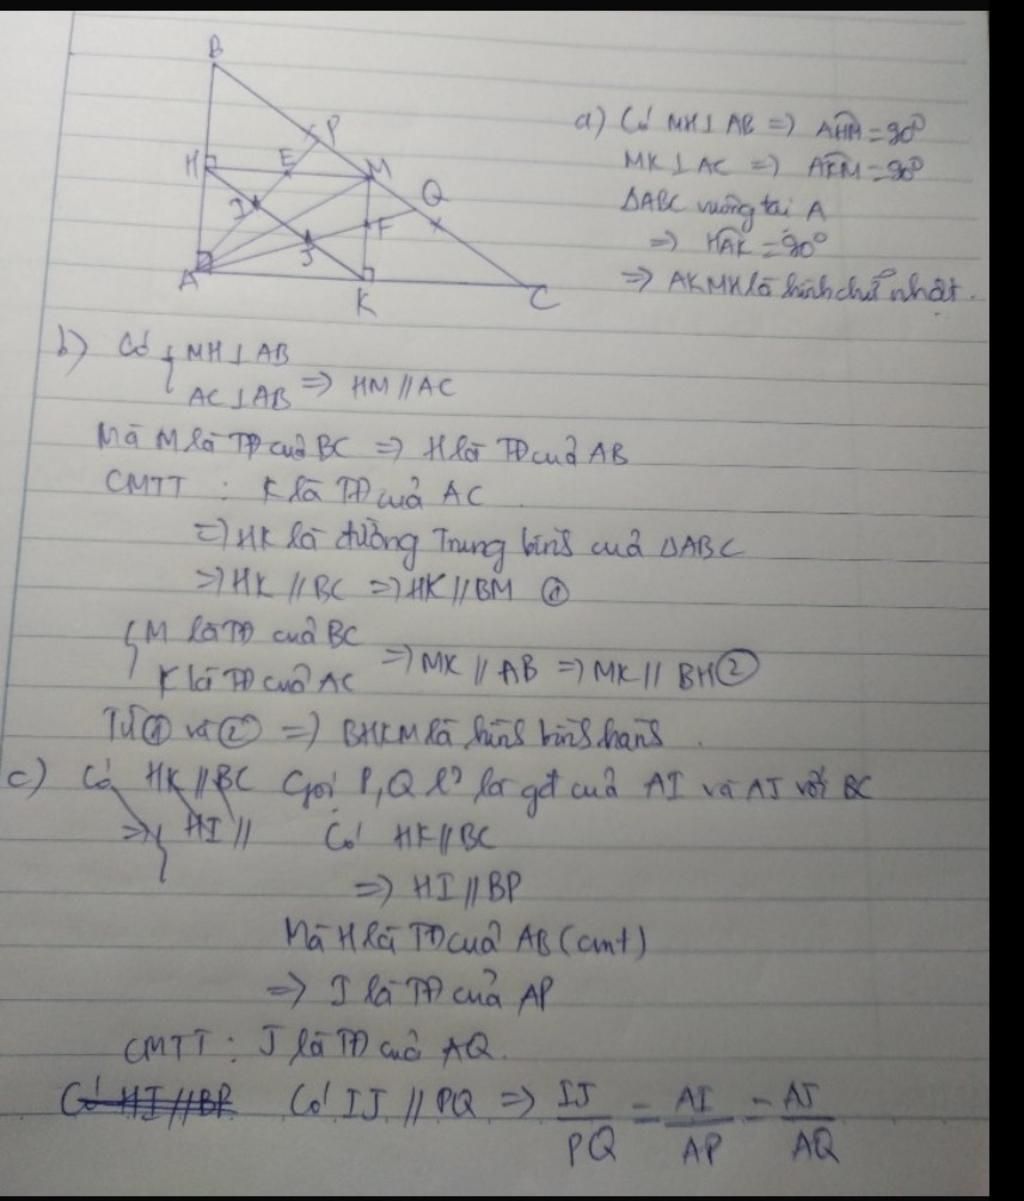 B
P
H
E
M
Q
I
F
J
A
K
C
a) Có MH⊥AB => AHM = 90⁰
MK⊥AC => AKM = 90⁰
ΔABC vuông tại A
=> HAK = 90⁰
=> AKMH là hình chữ nhật.
b) Có { MH⊥AB
AC⊥AB => HM // AC
Mà M là TĐ của BC => H là TĐ của AB
CMTT : K là TĐ của AC
=> HK là đường trung bình của ΔABC
=> HK // BC => HK // BM ①
{ M là TĐ của BC
K là TĐ của AC => MK // AB => MK // BH ②
Từ ① và ② => BHKM là hình bình hành.
c) Có HK // BC Gọi P, Q l² là gđ của AI và AJ với BC
=> { HI // Có HK // BC
=> HI // BP
Mà H là TĐ của AB (cmt)
=> I là TĐ của AP
CMTT : J là TĐ của AQ.
Có HI // BP Có IJ // PQ => IJ/PQ = AI/AP = AJ/AQ